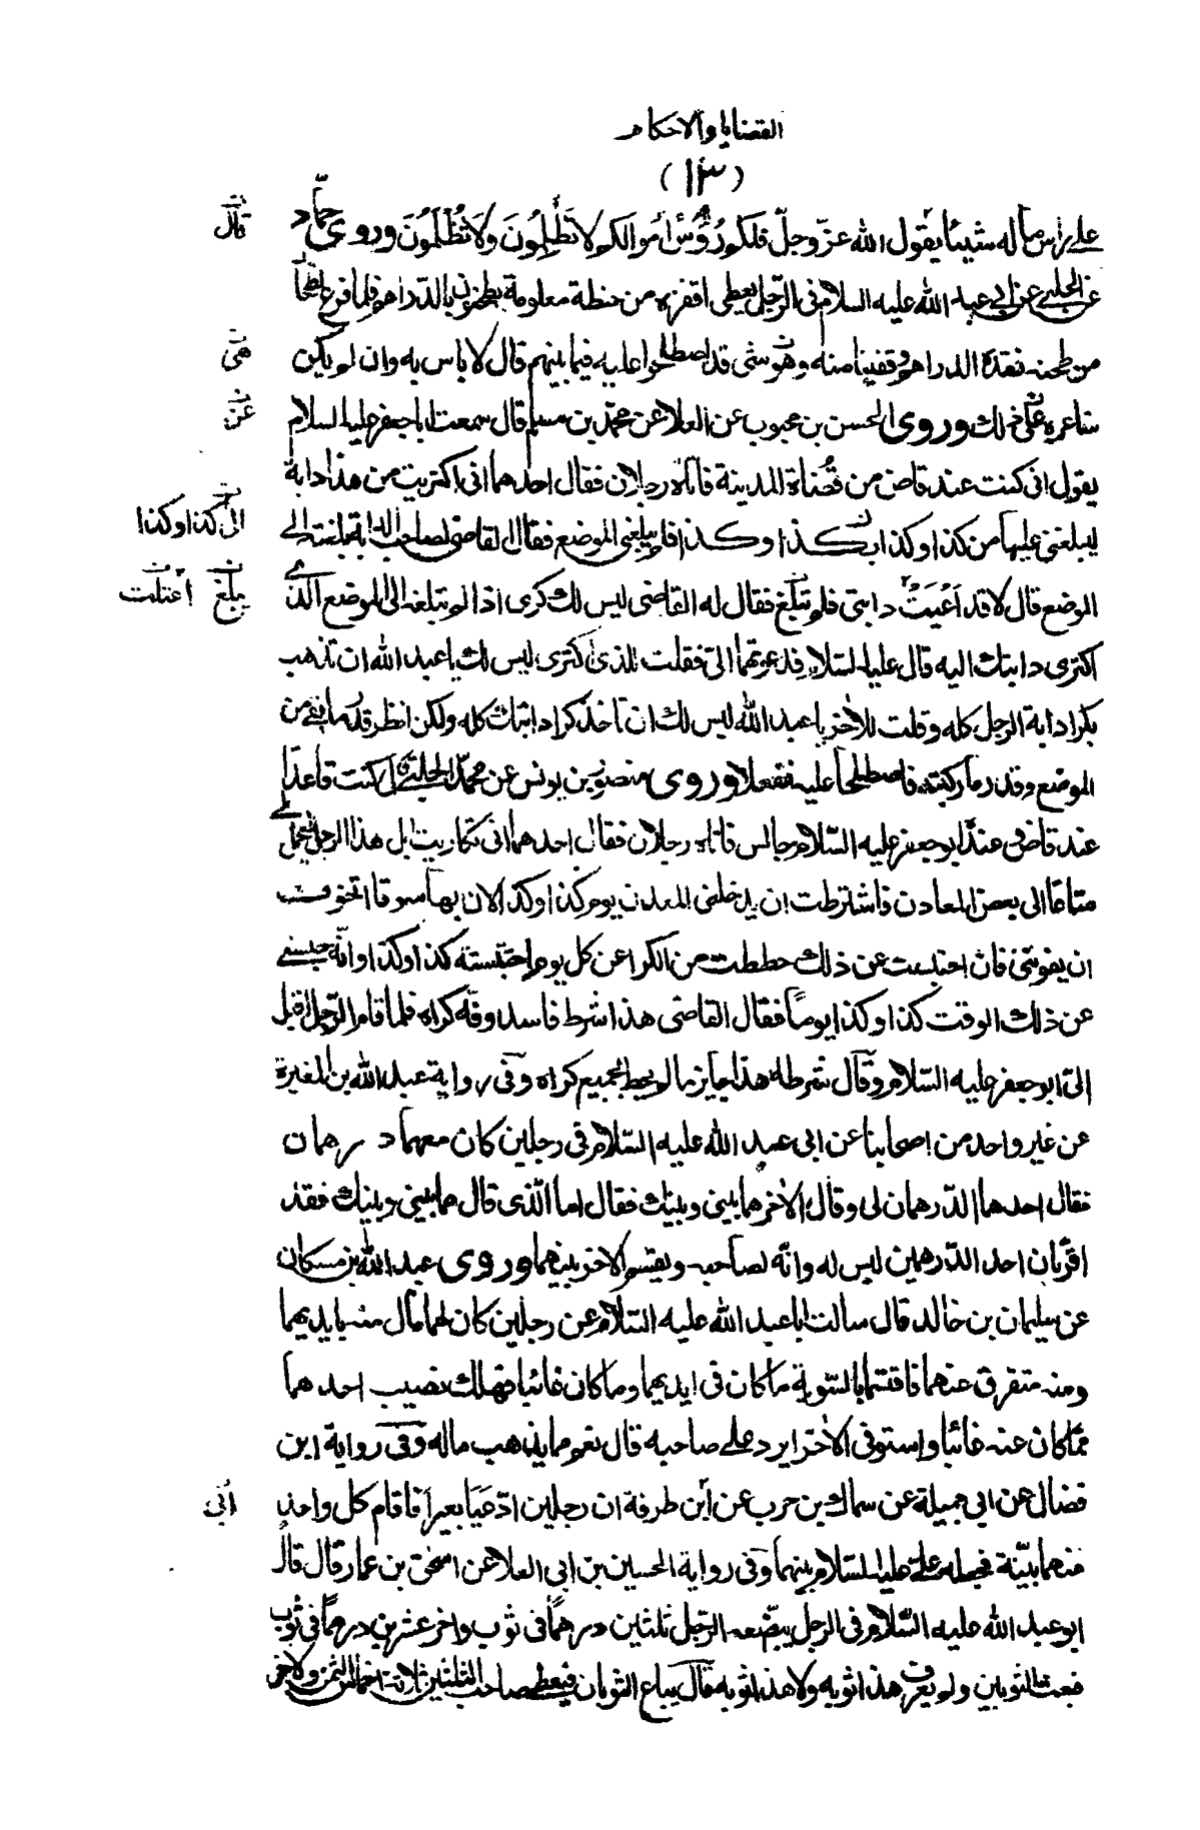 القضايا والاحكام
(١٣)
على راس ماله شيئا يقول الله عزّ وجلّ فلكم رُؤُسُ أموالكم لا تَظْلِمُونَ وَلا تُظْلَمُونَ وروى حمّاد
قال
عن الحلبي عن ابي عبد الله عليه السلام في الرّجل يعطى اقفزة من حنطة معلومة يطحنون بالدّراهم فلما فرغ الطحّان
من طحنه نقده الدراهم وقفيزا منه وهو شئ قد اصطلحوا عليه فيما بينهم قال لا باس به وان لم يكن
هى
ساعره على ذلك وروى الحسن بن محبوب عن العلا عن محمّد بن مسلم قال سمعت ابا جعفر عليه السلام
عن
يقول انى كنت عند قاض من قُضاة المدينة فاتاه رجلان فقال احدهما انى اكتريت من هذا دابة
ليبلغنى عليها من كذا وكذا بكذا وكذا فلم يبلغنى الموضع فقال القاضى لصاحب الدابة بلغته الى
الى كذا وكذا
الموضع قال لا قد اَعْيَتْ دابتى فلم تبلغ فقال له القاضى ليس لك كرى اذا لم تبلغه الى الموضع الّذى
يبلغ اعتلت
اكترى دابتك اليه قال عليه السّلام فدعوتهما الىّ فقلت للذى اكترى ليس لك يا عبد الله ان تذهب
بكرا دابة الرجل كله وقلت للآخر يا عبد الله ليس لك ان تاخذ كرا دابتك كله ولكن انظر قدر ما بقى من
الموضع وقدر ما ركبته فاصطلحا عليه ففعلا وروى منصور بن يونس عن محمّد الحلبىّ قال كنت قاعدا
عند قاض وعنده ابو جعفر عليه السّلام جالس فاتاه رجلان فقال احدهما انى تكاريت ابل هذا الرجل ليحمل لى
متاعا الى بعض المعادن فاشترطت ان يدخلنى المعدن يوم كذا وكذا لان بها سوقا اتخوف
ان يفوتنى فان احتبست عن ذلك حططت من الكرا عن كل يوم احتبسته كذا وكذا وانّه حبسنى
عن ذلك الوقت كذا وكذا يومًا فقال القاضى هذا شرط فاسد وفّه كراه فلما قام الرّجل اقبل
الىّ ابو جعفر عليه السّلام وقال شرطه هذا جايز ما لم يحط بجميع كراه وفى رواية عبد الله بن المغيرة
عن غير واحد من اصحابنا عن ابى عبد الله عليه السّلام فى رجلين كان معهما درهمان
فقال احدهما الدّرهمان لى وقال الآخر هما بينى وبينك فقال اما الّذى قال هما بينى وبينك فقد
اقرّ بان احد الدّرهمين ليس له وانّه لصاحبه ويقسم الاخر بينهما وروى عبد الله بن مسكان
عن سليمان بن خالد قال سالت ابا عبد الله عليه السّلام عن رجلين كان لهما مال منه بايديهما
ومنه متفرق عنهما فاقتسما بالسّوية ما كان فى ايديهما وما كان غائبا فهلك نصيب احدهما
ممّا كان عنه غائبا واستوفى الآخر ايرد على صاحبه قال نعم ما يذهب ماله وفى رواية ابن
فضال عن ابى جميلة عن سماك بن حرب عن ابن طرفة ان رجلين ادّعيا بعيرا فاقام كل واحد
ابى
منهما بيّنة فجعله علىّ عليه السّلام بينهما وفى رواية الحسين بن ابى العلا عن اسحق بن عمار قال قال
ابو عبد الله عليه السّلام فى الرجل يبضّعه الرّجل ثلثين درهمًا فى ثوب واخر عشرين درهمًا فى ثوب
فبعث الثوبين ولم يعرف هذا ثوبه ولا هذا ثوبه قال يباع الثوبان فيعطى صاحب الثلثين ثلاثة اخماس الثمن والاخر